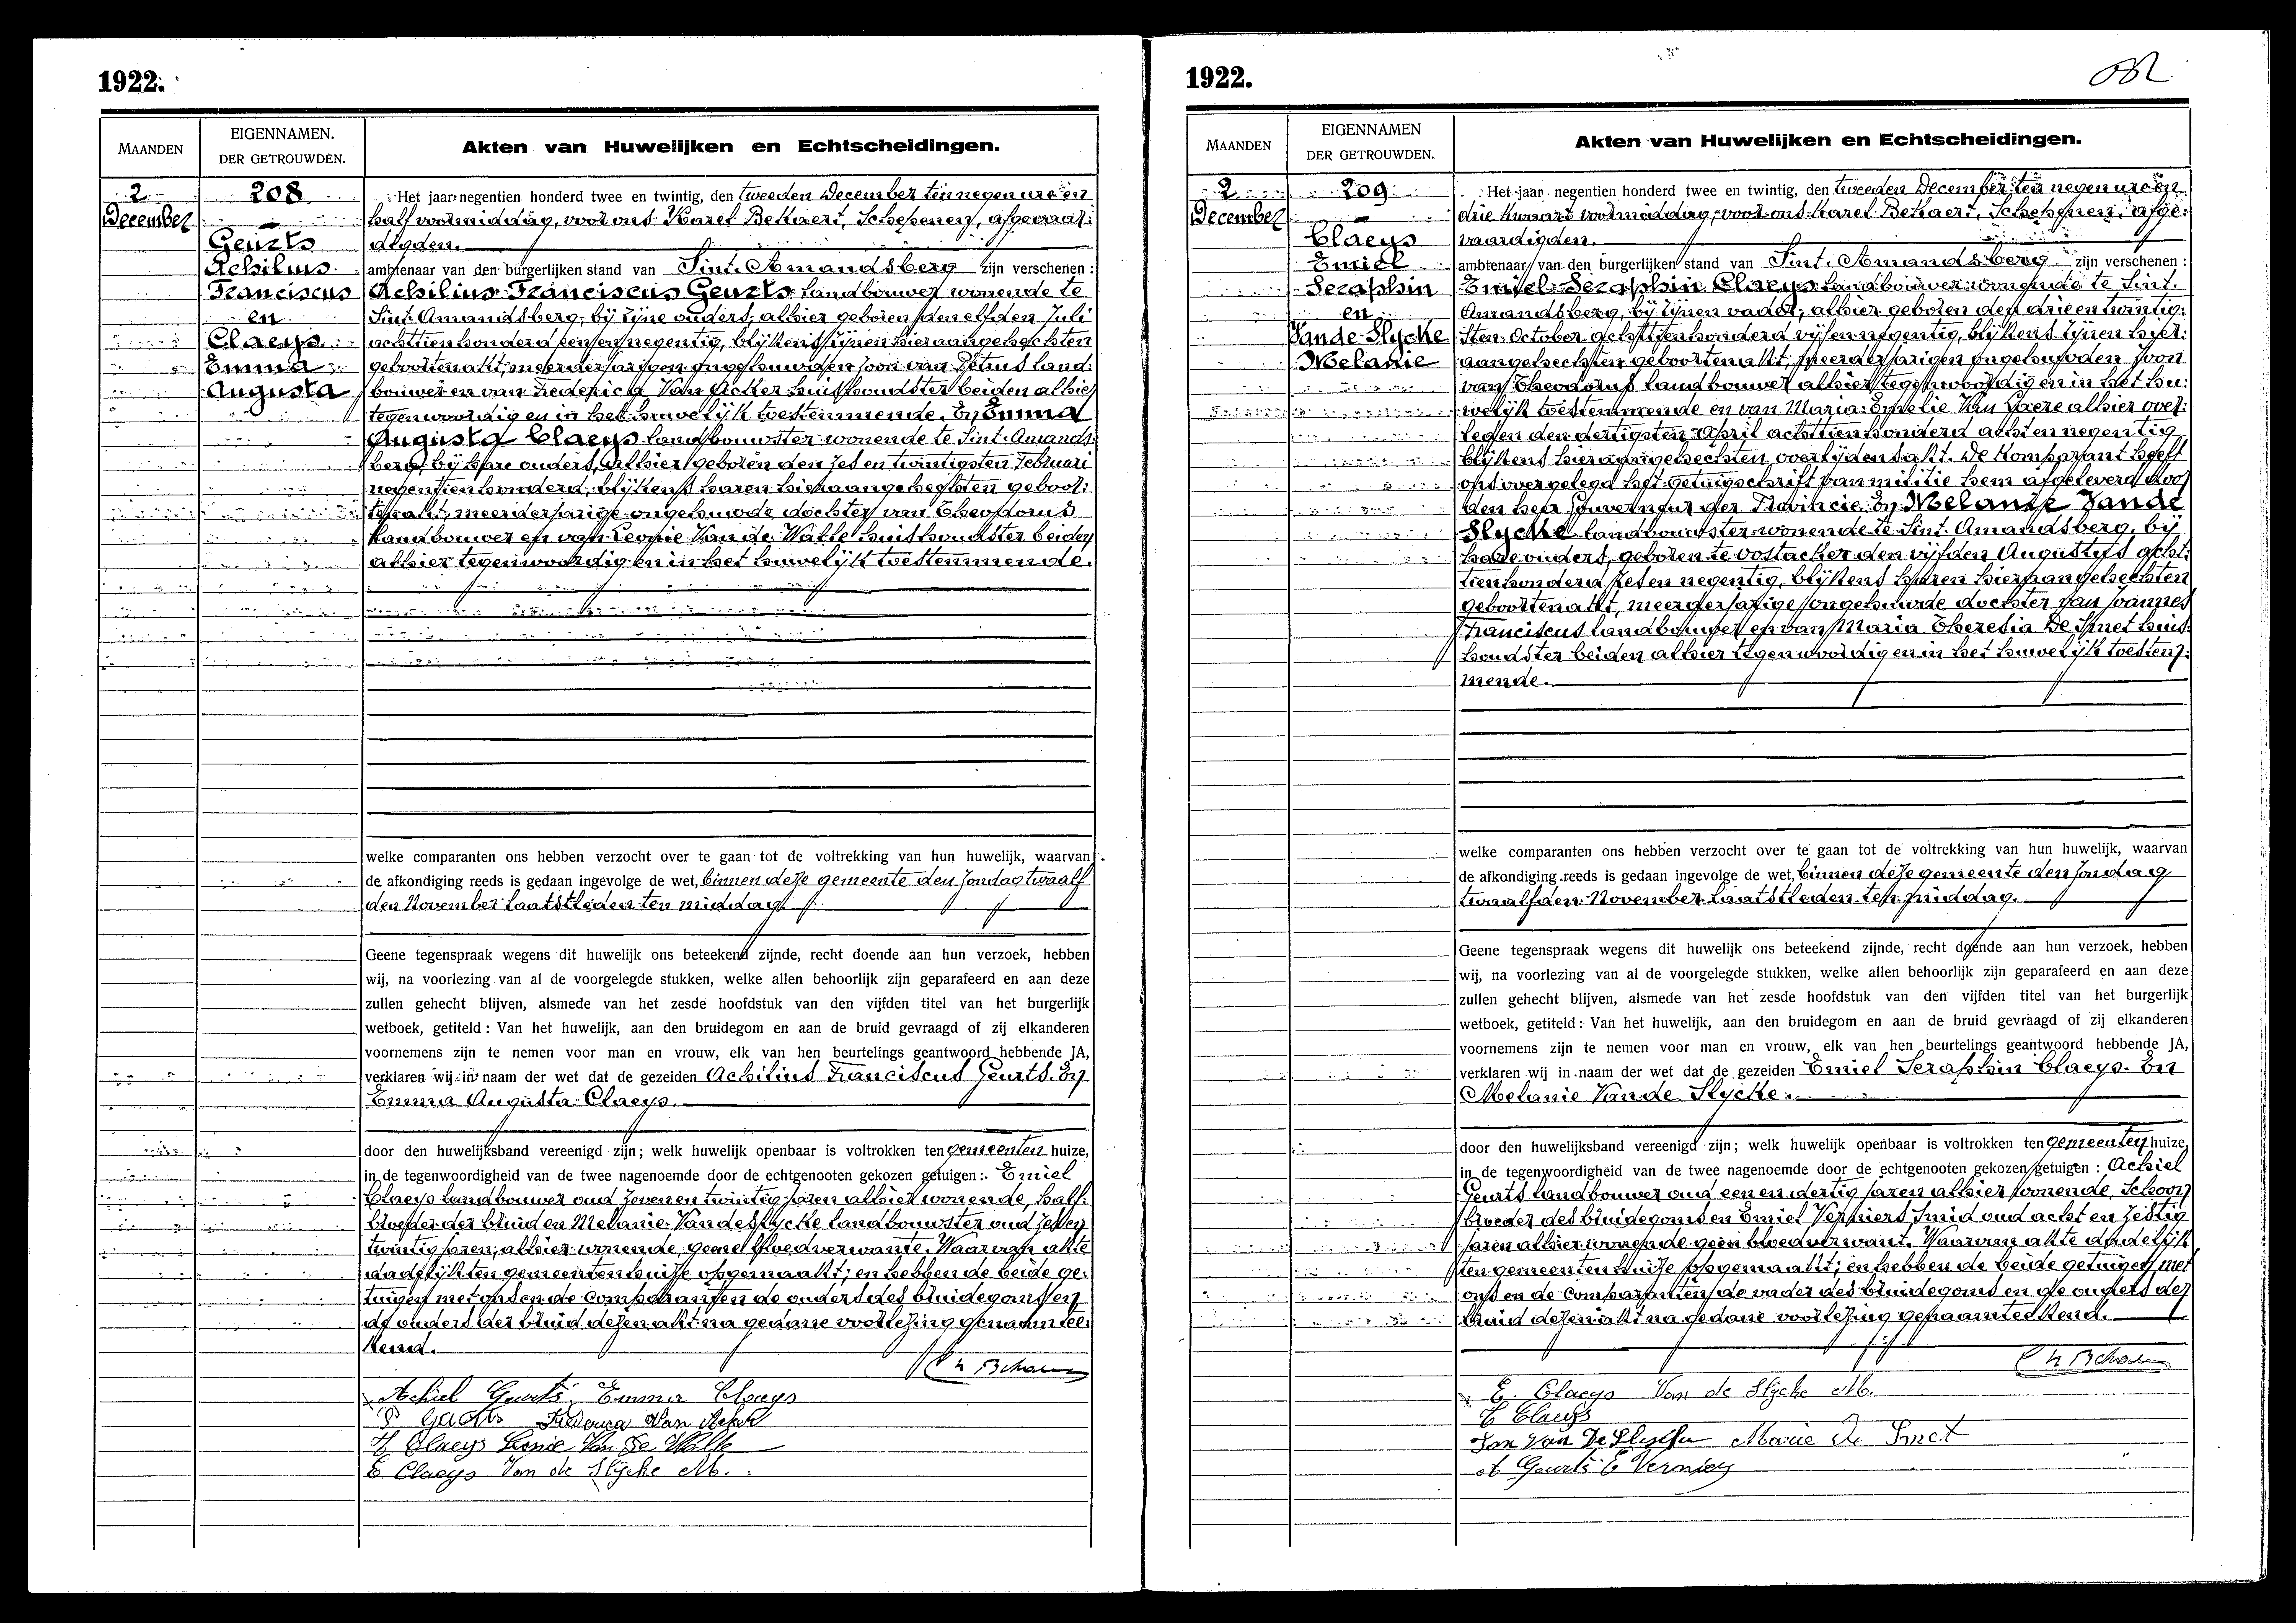 1922.
MAANDEN
EIGENNAMEN.
DER GETROUWDEN.
Akten van Huwelijken en Echtscheidingen.
2
December
208
Geurts
Achilius
Franciscus
en
Claeys
Emma
Augusta
Het jaar negentien honderd twee en twintig, den tweeden December ten negen ure en
half voormiddag, voor ons Karel Bekaert, Schepenen, afgevaar:
digden.
ambtenaar van den burgerlijken stand van Sint-Amandsberg zijn verschenen:
Achilius Franciscus Geurts landbouwer wonende te
Sint-Amandsberg, bij zijne ouders, alhier geboren den elfden Juli
achttien honderd een en negentig, blijkens zijnen hieraangehechten
geboortenakt, meerderjarigen ongehuwden zoon van Petrus land:
bouwer en van Frederica Van Acker huishoudster beiden alhier
tegenwoordig en in het huwelijk toestemmende. En Emma
Augusta Claeys landbouwster wonende te Sint-Amands:
berg, bij hare ouders, alhier geboren den zes en twintigsten Februari
negentien honderd, blijkens haren hieraangehechten geboor:
tenakt, meerderjarige ongehuwde dochter van Theodorus
landbouwer en van Leonie Van de Walle huishoudster beiden
alhier tegenwoordig en in het huwelijk toestemmende.
welke comparanten ons hebben verzocht over te gaan tot de voltrekking van hun huwelijk, waarvan
de afkondiging reeds is gedaan ingevolge de wet, binnen deze gemeente den zondag twaalf
den November laatstleden ten middag.
Geene tegenspraak wegens dit huwelijk ons beteekend zijnde, recht doende aan hun verzoek, hebben
wij, na voorlezing van al de voorgelegde stukken, welke allen behoorlijk zijn geparafeerd en aan deze
zullen gehecht blijven, alsmede van het zesde hoofdstuk van den vijfden titel van het burgerlijk
wetboek, getiteld: Van het huwelijk, aan den bruidegom en aan de bruid gevraagd of zij elkanderen
voornemens zijn te nemen voor man en vrouw, elk van hen beurtelings geantwoord hebbende JA,
verklaren wij in naam der wet dat de gezeiden Achilius Franciscus Geurts. En
Emma Augusta Claeys.
door den huwelijksband vereenigd zijn; welk huwelijk openbaar is voltrokken ten gemeenten huize,
in de tegenwoordigheid van de twee nagenoemde door de echtgenooten gekozen getuigen: Emiel
Claeys landbouwer oud zeven en twintig jaren alhier wonende, half:
broeder der bruid en Melanie Vande Slycke landbouwster oud zes en
twintig jaren, alhier wonende, geene bloedverwante. Waarvan akte
dadelijk ten gemeenten huize opgemaakt; en hebben de beide ge:
tuigen met ons en de comparanten de ouders des bruidegoms en
de ouders der bruid dezen akt na gedane voorlezing genaamtee:
kend.
Achiel Geurts Emma Claeys
P Geurts Frederica Van Acker
Claeys Leonie Van De Walle
E. Claeys Van de Slycke M.
1922.
MAANDEN
EIGENNAMEN
DER GETROUWDEN.
Akten van Huwelijken en Echtscheidingen.
2
December
209
Claeys
Emiel
Seraphin
en
Vande Slycke
Melanie
Het jaar negentien honderd twee en twintig, den tweeden December, ten negen ure en
drie kwaart voormiddag, voor ons Karel Bekaert, Schepenen, afge:
vaardigden.
ambtenaar van den burgerlijken stand van Sint-Amandsberg zijn verschenen:
Emiel Seraphin Claeys landbouwer wonende te Sint-
Amandsberg, bij zijnen vader, alhier geboren den drie en twintig:
sten October achttien honderd vijf en negentig, blijkens zijnen hier:
aangehechten geboortenakt, meerderjarigen ongehuwden zoon
van Theodorus landbouwer alhier tegenwoordig en in het hu:
welijk toestemmende en van Maria Emelie Van Laere alhier over:
leden den dertigsten April achttien honderd acht en negentig
blijkens hieraangehechten overlijdensakt. De komparant heeft
ons overgelegd het getuigschrift van militie hem afgeleverd door
den heer Gouverneur der Provincie. En Melanie Vande
Slycke landbouwster wonende te Sint-Amandsberg, bij
hare ouders, geboren te Oostacker den vijfden Augustus acht:
tien honderd zes en negentig, blijkens haren hieraangehechten
geboortenakt, meerderjarige ongehuwde dochter van Joannes
Franciscus landbouwer en van Maria Theresia De Smet huis:
houdster beiden alhier tegenwoordig en in het huwelijk toestem:
mende.
welke comparanten ons hebben verzocht over te gaan tot de voltrekking van hun huwelijk, waarvan
de afkondiging reeds is gedaan ingevolge de wet, binnen deze gemeente den zondag
twaalfden November laatstleden ten middag.
Geene tegenspraak wegens dit huwelijk ons beteekend zijnde, recht doende aan hun verzoek, hebben
wij, na voorlezing van al de voorgelegde stukken, welke allen behoorlijk zijn geparafeerd en aan deze
zullen gehecht blijven, alsmede van het zesde hoofdstuk van den vijfden titel van het burgerlijk
wetboek, getiteld: Van het huwelijk, aan den bruidegom en aan de bruid gevraagd of zij elkanderen
voornemens zijn te nemen voor man en vrouw, elk van hen beurtelings geantwoord hebbende JA,
verklaren wij in naam der wet dat de gezeiden Emiel Seraphin Claeys. En
Melanie Vande Slycke.
door den huwelijksband vereenigd zijn; welk huwelijk openbaar is voltrokken ten gemeenten huize,
in de tegenwoordigheid van de twee nagenoemde door de echtgenooten gekozen getuigen: Achiel
Geurts landbouwer oud een en dertig jaren alhier wonende, Schoon
broeder des bruidegoms en Emiel Verniers smid oud acht en zestig
jaren alhier wonende geen bloedverwant. Waarvan akte dadelijk
ten gemeenten huize opgemaakt; en hebben de beide getuigen met
ons en de comparanten de vader des bruidegoms en de ouders der
bruid dezen akt na gedane voorlezing genaamteekend.
E. Claeys Van de Slycke M.
Claeys
Jan Van De Slycke Marie De Smet
A Geurts E Verniers